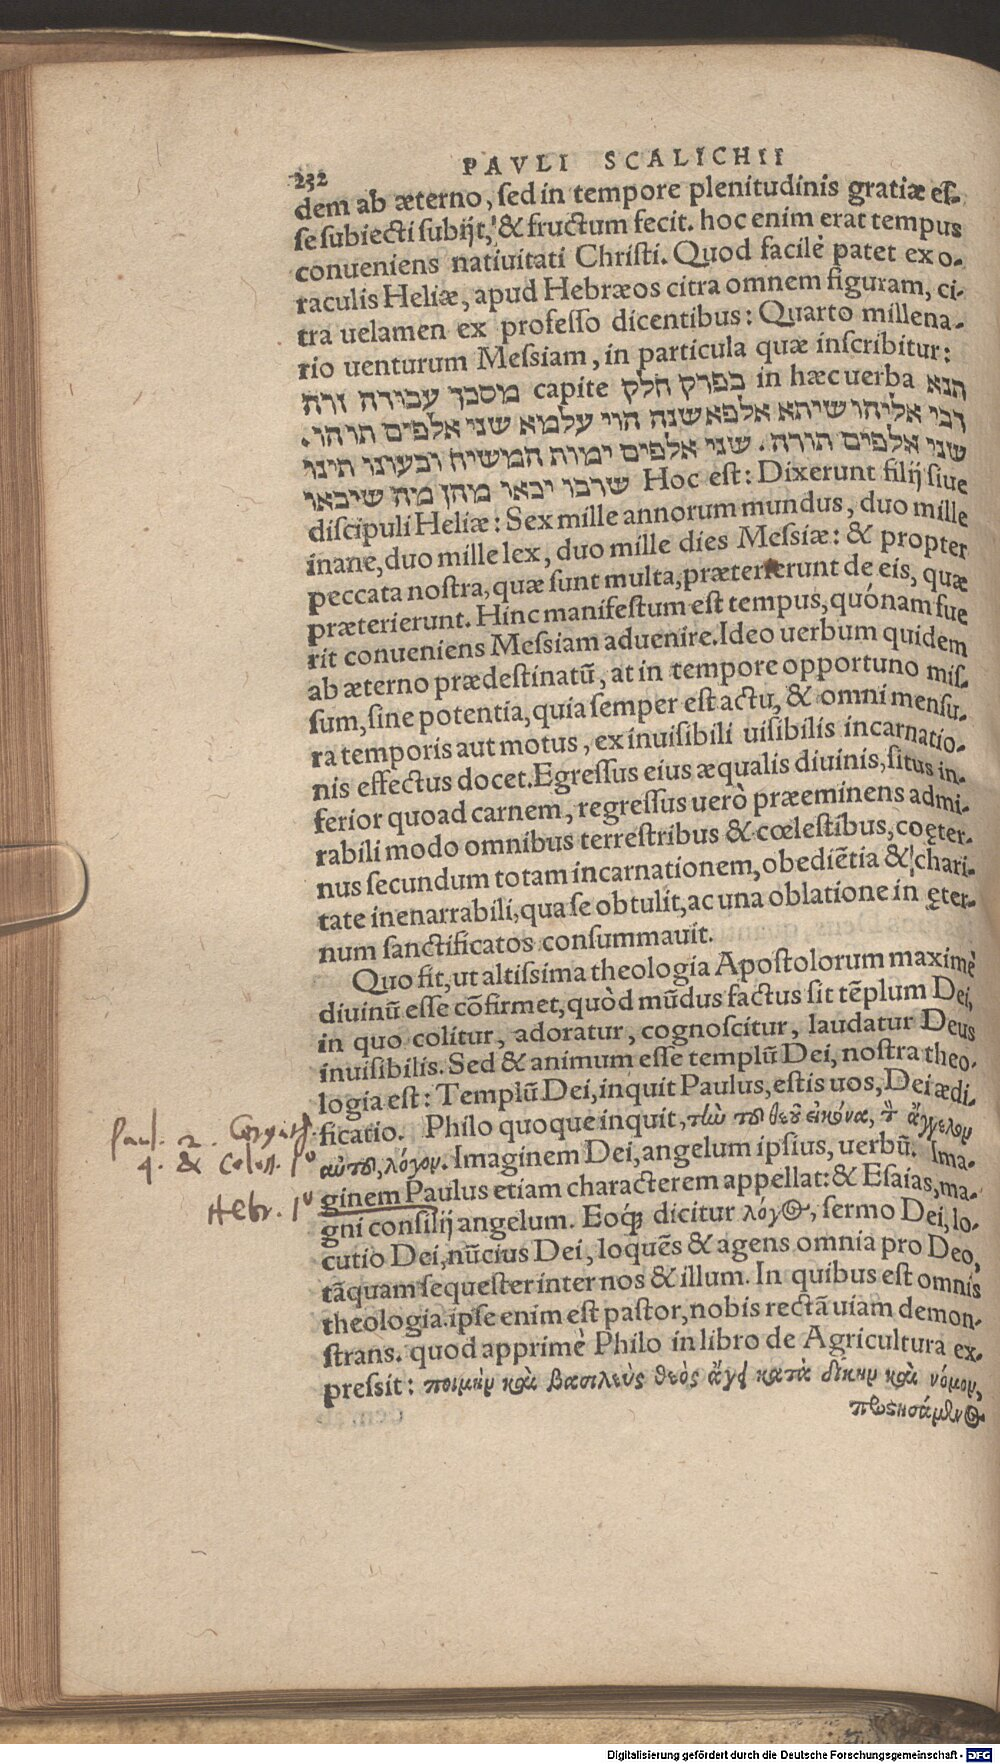 232 PAVLI SCALICHII
dem ab æterno, sed in tempore plenitudinis gratiæ es-
se subiecti subijt, & fructum fecit. hoc enim erat tempus
conueniens natiuitati Christi. Quod facilè patet ex o-
raculis Heliæ, apud Hebræos citra omnem figuram, ci-
tra uelamen ex professo dicentibus: Quarto millena-
rio uenturum Messiam, in particula quæ inscribitur:
מסכך עבורה זרה capite בפרק חלק in hæc uerba תנא
דבי אליהו שיתא אלפא שנה הוי עלמא שני אלפים תוהו.
שני אלפים תורה. שני אלפים ימות המשיח ובעונו תינו
שרבו יבאו מהן מה שיבאו Hoc est: Dixerunt filij siue
discipuli Heliæ: Sex mille annorum mundus, duo mille
inane, duo mille lex, duo mille dies Messiæ: & propter
peccata nostra, quæ sunt multa, præterierunt de eis, quæ
præterierunt. Hinc manifestum est tempus, quónam fue
rit conueniens Messiam aduenire. Ideo uerbum quidem
ab æterno prædestinatũ, at in tempore opportuno mis-
sum, sine potentia, quia semper est actu, & omni mensu-
ra temporis aut motus, ex inuisibili uisibilis incarnatio-
nis effectus docet. Egressus eius æqualis diuinis, situs in-
ferior quoad carnem, regressus uerò præeminens admi-
rabili modo omnibus terrestribus & cœlestibus, coęter-
nus secundum totam incarnationem, obediẽtia & chari-
tate inenarrabili, qua se obtulit, ac una oblatione in ęter-
num sanctificatos consummauit.
Quo fit, ut altissima theologia Apostolorum maximè
diuinũ esse cõfirmet, quòd mũdus factus sit tẽplum Dei,
in quo colitur, adoratur, cognoscitur, laudatur Deus
inuisibilis. Sed & animum esse templũ Dei, nostra theo-
logia est: Templũ Dei, inquit Paulus, estis uos, Dei ædi-
ficatio. Philo quoque inquit, τὴν τοῦ θεοῦ εἰκόνα, τὸν ἄγγελον
αὐτοῦ, λόγον. Imaginem Dei, angelum ipsius, uerbũ. Ima-
ginem Paulus etiam characterem appellat: & Esaias, ma-
gni consilij angelum. Eoq́; dicitur λόγος, sermo Dei, lo-
cutio Dei, nũcius Dei, loquẽs & agens omnia pro Deo,
tãquam sequester inter nos & illum. In quibus est omnis
theologia. ipse enim est pastor, nobis rectã uiam demon-
strans. quod apprimè Philo in libro de Agricultura ex-
pressit: ποιμὴν καὶ βασιλεὺς θεὸς ἄγει κατὰ δίκην καὶ νόμον,
προστησάμενος
Paul. 2. Corynth.
4. & Colos. 1º
Hebr. 1º
Digitalisierung gefördert durch die Deutsche Forschungsgemeinschaft - DFG